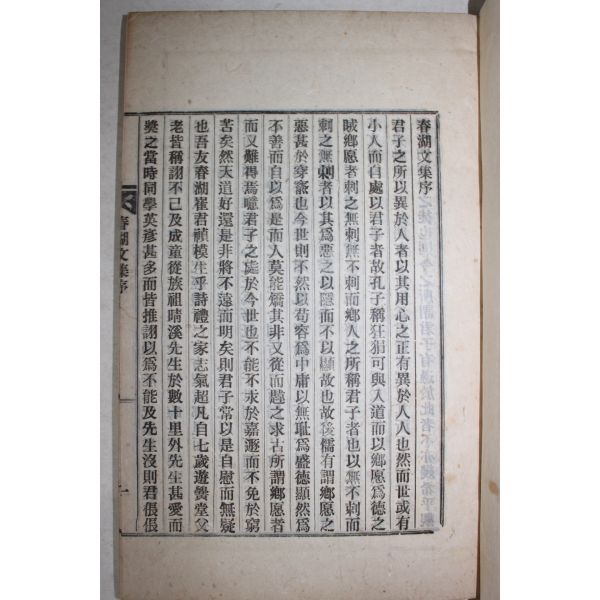 春湖文集序
君子之所以異於人者以其用心之正有異於人人也然而世或有
小人而自處以君子者故孔子稱狂狷可與入道而以鄉愿爲德之
賊鄉愿者刺之無刺而鄉人之所稱君子者也以無不刺而
刺之無刺者以其爲惡之以隱而不以顯故也故後儒有謂鄉愿之
惡甚於穿窬也今世則不然以苟容爲中庸以無耻爲盛德顯然爲
不善而自以爲是而人莫能矯其非又從而韙之求古所謂鄉愿者
而又難得焉噫君子之處於今世也不能不求於嘉遯而不免於窮
苦矣然天道好還是非將不遠而明矣則君子常以是自慰而無疑
也吾友春湖崔君禎模生乎詩禮之家志氣超凡自七歲遊黌堂父
老皆稱詡不已及成童從族祖晴溪先生於數十里外先生甚愛而
獎之當時同學英彥甚多而皆推詡以爲不能及先生沒則君倀倀
春湖文集序
一